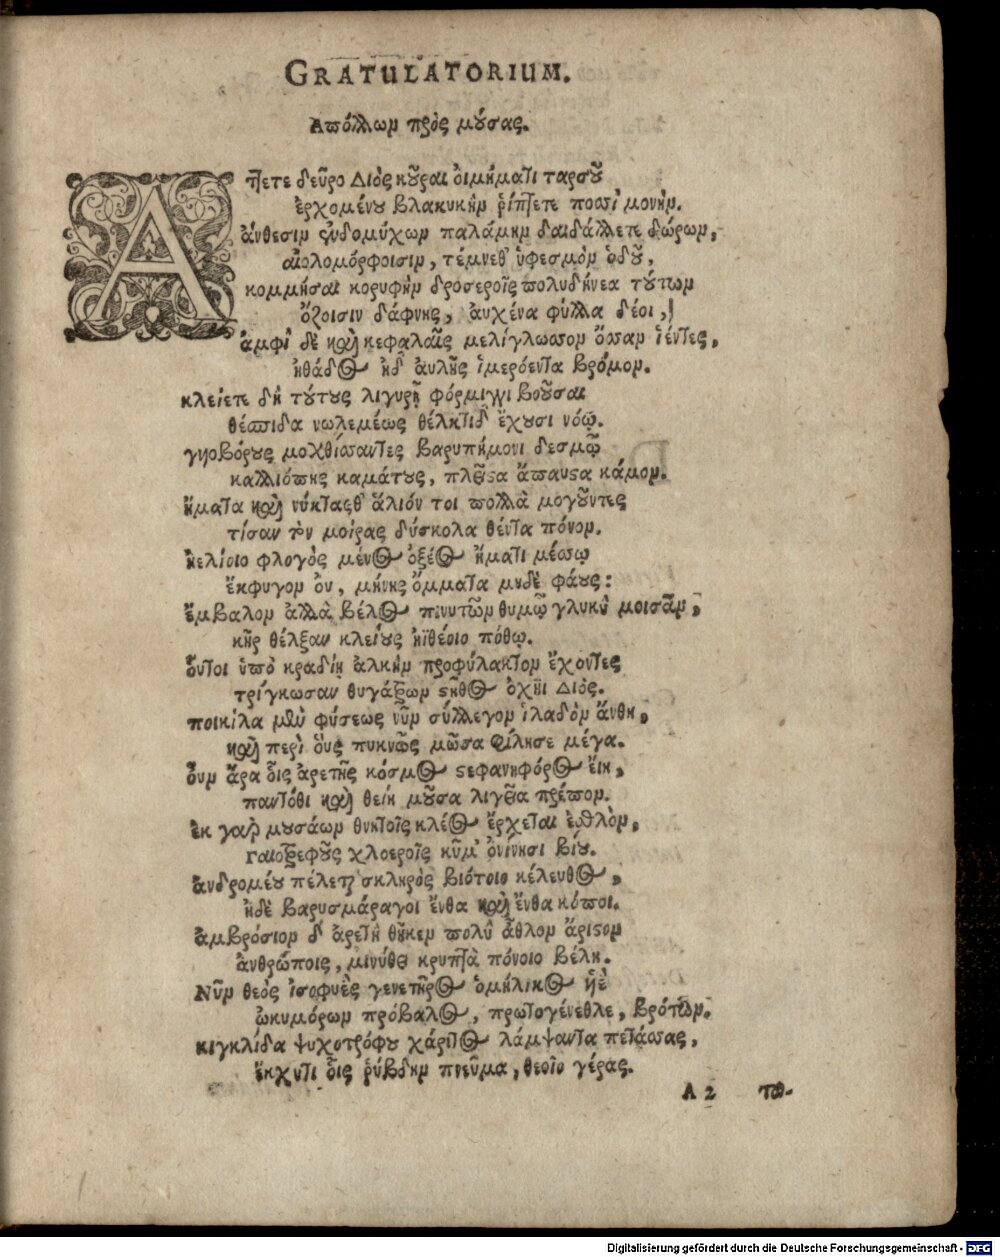 GRATULATORIUM.
Ἀπόλλων πρὸς μούσας.
Ἄξετε δεῦρο Διὸς κοῦραι οἰμήματι ταρσοῦ
ἐρχομένου βλακικὴν ῥίπτετε ποσσὶ μονήν.
ἄνθεσιν παλάμην δαιδάλλετε δώρων,
αἰολομόρφοισιν, τέμνεθ' ὑφεσμὸν ὁδοῦ,
κομμῆσαι κορυφὴν δροσεροῖς πολυδήνεα τούτων
ὄζοισιν δάφνης, αὐχένα φύλλα δέοι,
ἀμφὶ δὲ καὶ κεφαλαῖς μελίγλωσσον ὄσσαν ἱέντες,
ἠθάδος ἠδ' αὐλῆς ἱμερόεντα βρόμον.
κλείετε δὴ τούτους λιγυρῇ φόρμιγγι βοῦσαι
θέσπιδα νωλεμέως θέλκτιδ' ἔχουσι νόῳ.
γυιοβόρους μοχθίσσαντες βαρυπήμονι δεσμῷ
καλλιόπης καμάτους, πλεῖστα ἄπαυστα κάμον.
ἤματα καὶ νύκτας θ' ἅλιόν τοι πολλὰ μογοῦντες
τίσαν τὸν μοίρας δύσκολα θέντα πόνον.
ἠελίοιο φλογὸς μένος ὀξέος ἤματι μέσσῳ
ἔκφυγον οὐ, μήνης ὄμματα μηδὲ φάους:
ἔμβαλον ἀλλὰ βέλος πινυτῶν θυμῷ γλυκὺ μοισᾶν,
κῆρ θέλξαν κλείους ἠϊθέοιο πόθῳ.
οὗτοι ὑπὸ κραδίῃ ἀλκὴν προφύλακτον ἔχοντες
τρίγκωσαν θυγάτρων στῆθος ὀχῆι Διός.
ποικίλα μὲν φύσεως νῦν σύλλεγον ἱλαδὸν ἄνθη,
καὶ περὶ οὓς πυκνῶς μῶσα φίλησε μέγα.
οὖν ἄρα οἷς ἀρετῆς κόσμος στεφανηφόρος εἴη,
παντόθι καὶ θείη μοῦσα λιγεῖα πρέπον.
ἐκ γὰρ μουσάων θνητοῖς κλέος ἔρχεται ἐσθλὸν,
γαιοτρεφοῦς χλοεροῖς κῦμ' ὀνίνησι βίου.
ἀνδρομέου πέλεται σκληρὸς βιότοιο κέλευθος,
ἠδὲ βαρυσμάραγοι ἔνθα καὶ ἔνθα κόποι.
ἀμβρόσιον δ' ἀρετὴ θοῦκεν πολὺ ἆθλον ἄριστον
ἀνθρώποις, μινύθει κρυπτὰ πόνοιο βέλη.
Νῦν θεὸς ἰσοφυὲς γενετῆρος ὁμήλικος ἠὲ
ὠκυμόρων πρόβαλος, πρωτογένεθλε, βρότων.
κιγκλίδα ψυχοτρόφου χάριτος λάμψαντα πετάσσας,
ἔκχυτι οἷς ῥύβδην πνεῦμα, θεοῖο γέρας.
A 2 Τοι-
Digitalisierung gefördert durch die Deutsche Forschungsgemeinschaft - DFG